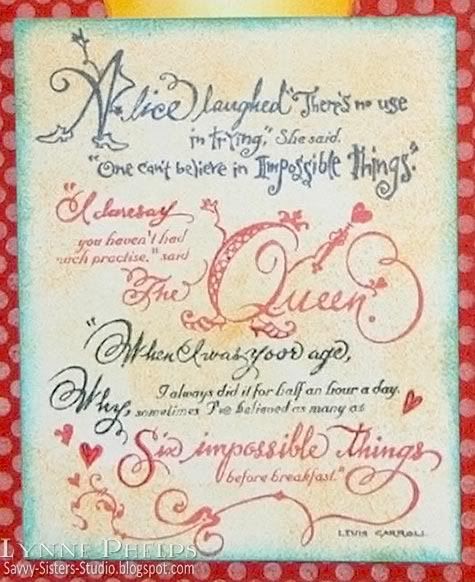 Alice laughed "There's no use
in trying," She said.
"One can't believe in Impossible Things."
"I daresay
you haven't had
much practise." said
The Queen.
"When I was your age,
I always did it for half an hour a day.
Why, sometimes I've believed as many as
Six impossible Things
before breakfast."
LEWIS CARROLL
LYNNE PHELPS
SAVVY-SISTERS-STUDIO.blogspot.com